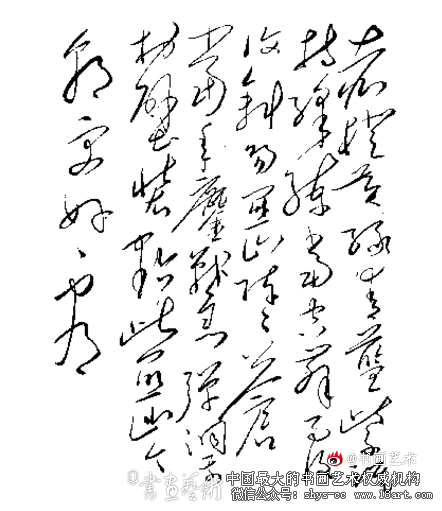 赤橙黄绿青蓝紫谁
持彩练当空舞雨后
复斜阳关山阵阵苍
当年鏖战急弹洞前
村壁装点此关山今
朝更好看
@书画艺术
書畫藝術
中国最大的书画艺术权威机构
微信公众号: shys-cc www.18art.cn